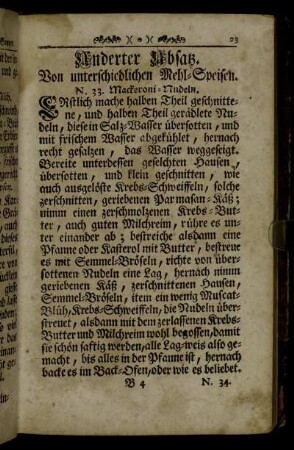 23
Anderter Absatz.
Von unterschiedlichen Mehl-Speisen.
N. 33. Mackeroni-Nudeln.
ERstlich mache halben Theil geschnitte-
ne, und halben Theil gerädlete Nu-
deln, diese in Saltz-Wasser übersotten, und
mit frischem Wasser abgekühlet, hernach
recht gesalzen, das Wasser weggeseigt.
Bereite unterdessen geselchten Hausen,
übersotten, und klein geschnitten, wie
auch ausgelöste Krebs-Schweiffeln, solche
zerschnitten, geriebenen Parmasan-Käß;
nimm einen zerschmolzenen Krebs-But-
ter, auch guten Milchreim, rühre es un-
ter einander ab; bestreiche alsdann eine
Pfanne oder Kasterol mit Butter, bestreue
es mit Semmel-Bröseln, richte von über-
sottenen Nudeln eine Lag, hernach nimm
geriebenen Käß, zerschnittenen Hausen,
Semmel-Bröseln, item ein wenig Muscat-
Blüh, Krebs-Schweiffeln, die Nudeln über-
streuet, alsdann mit dem zerlassenen Krebs-
Butter und Milchreim wohl begossen, damit
sie schön saftig werden, alle Lag-weis also ge-
macht, bis alles in der Pfanne ist, hernach
backe es im Back-Ofen, oder wie es beliebet.
B 4 N. 34.